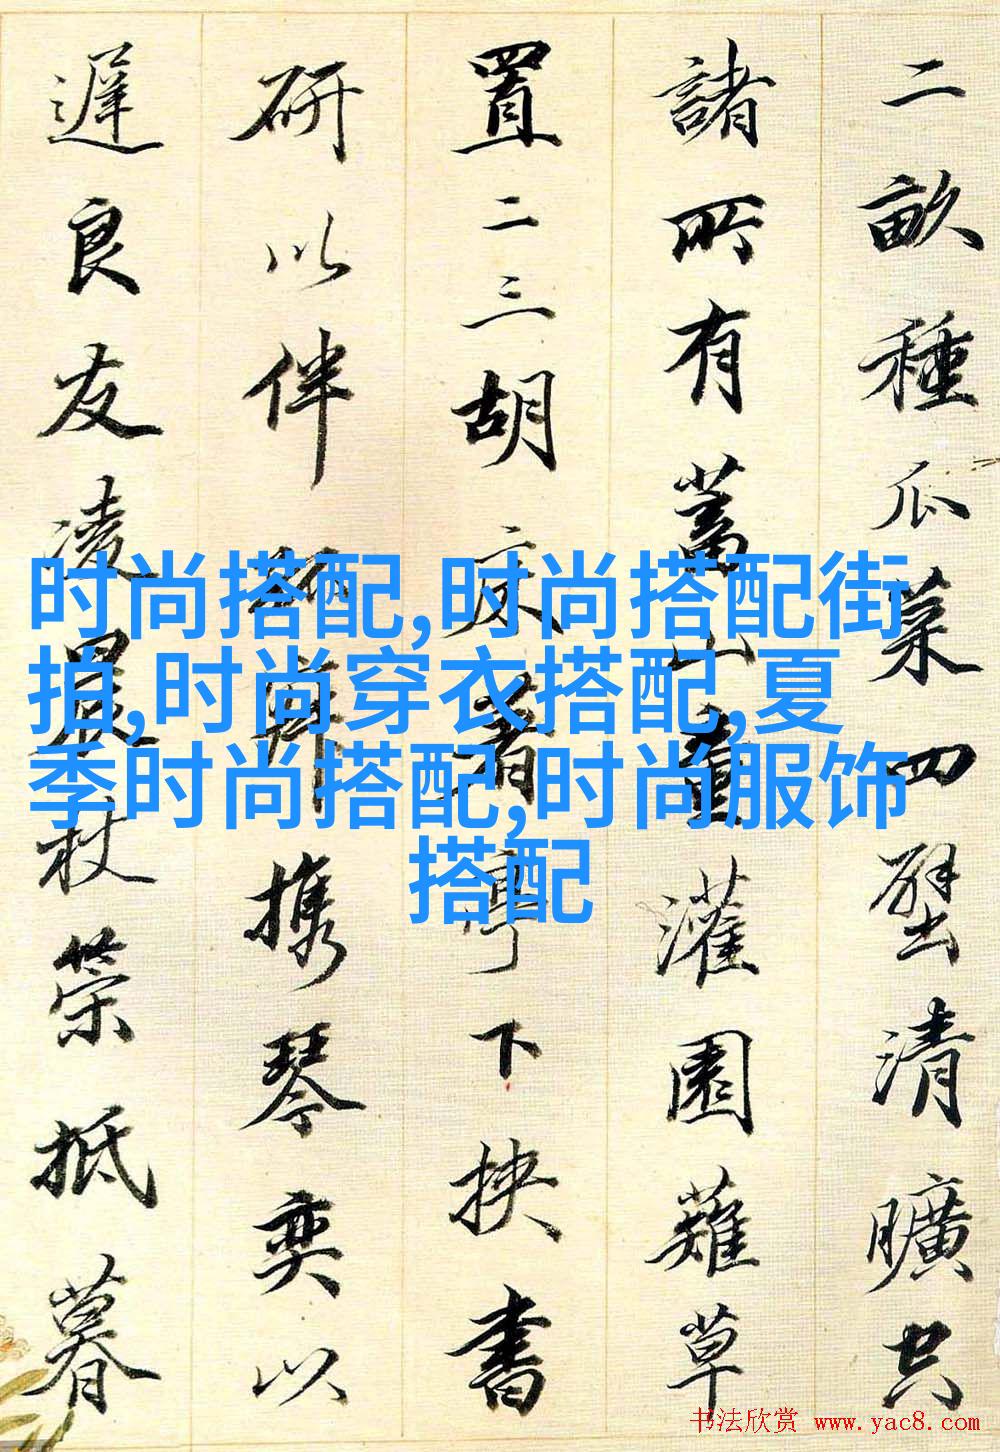 二畝種瓜菜四壁清曠空
諸所有蓄山童灌園薙草
置二三胡床著亭下挾書
研以伴孤寂攜琴奕以
遲良友凌晨杖策抵暮
时尚搭配,时尚搭配街
拍,时尚穿衣搭配,夏
季时尚搭配,时尚服饰
搭配
书法欣赏 www.yac8.com